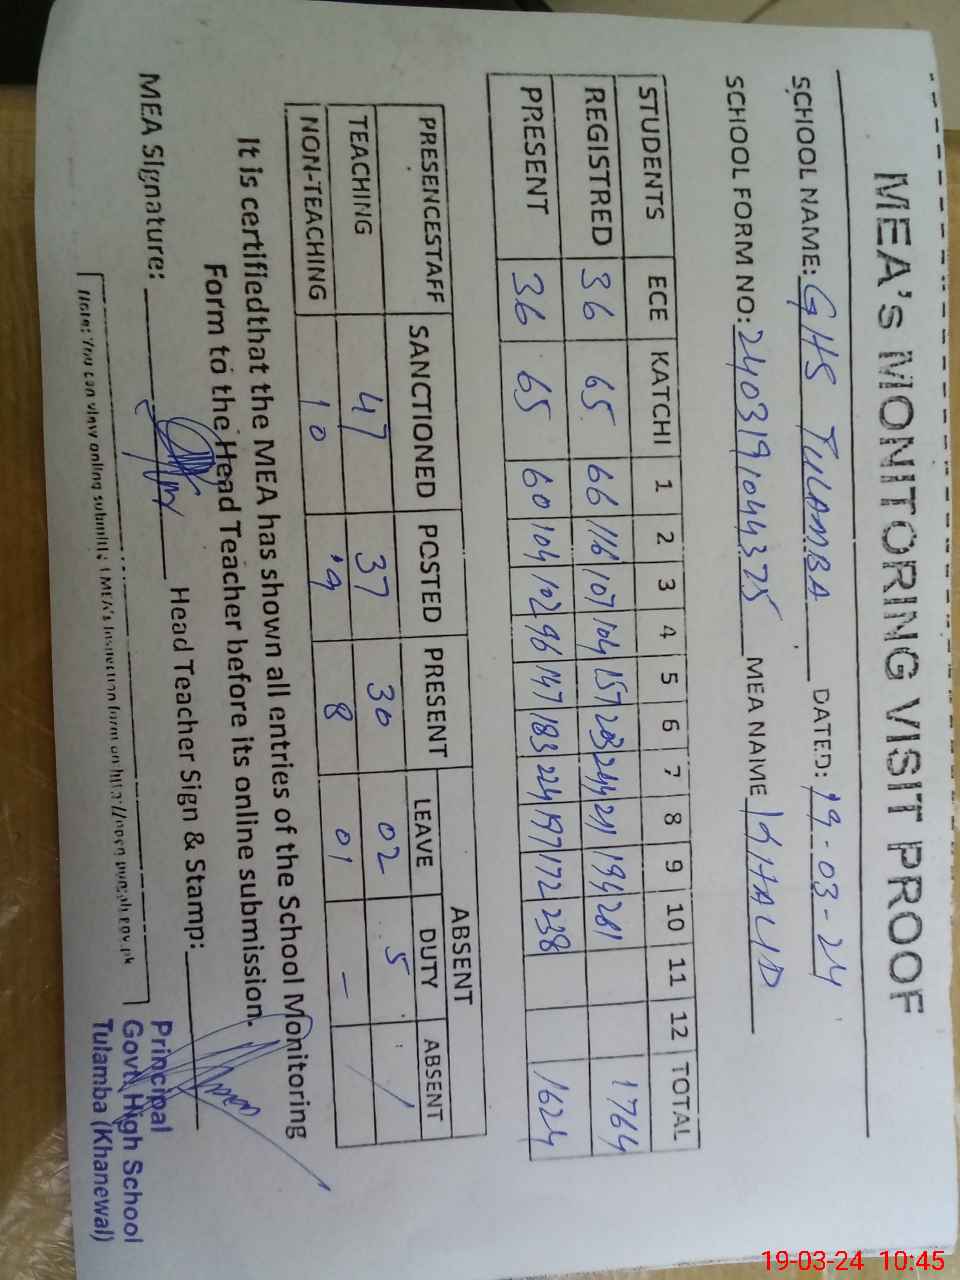 MEA's MONITORING VISIT PROOF
SCHOOL NAME: GHS TULAMBA DATED: 19-03-24
SCHOOL FORM NO: 2403191044375 MEA NAME KHALID
STUDENTS ECE KATCHI 1 2 3 4 5 6 7 8 9 10 11 12 TOTAL
REGISTRED 36 65 66 116 107 104 157 203 244 211 194 261 1764
PRESENT 36 65 60 104 102 96 147 183 224 197 172 238 1624
ABSENT
PRESENCESTAFF SANCTIONED POSTED PRESENT LEAVE DUTY ABSENT
TEACHING 47 37 30 02 5 /
NON-TEACHING 10 9 8 01 -
It is certifiedthat the MEA has shown all entries of the School Monitoring
Form to the Head Teacher before its online submission.
MEA Signature: Head Teacher Sign & Stamp:
Principal
Govt. High School
Tulamba (Khanewal)
Note: You can view online submitted MEA's Inspection form on http://open.punjab.gov.pk
19-03-24 10:45